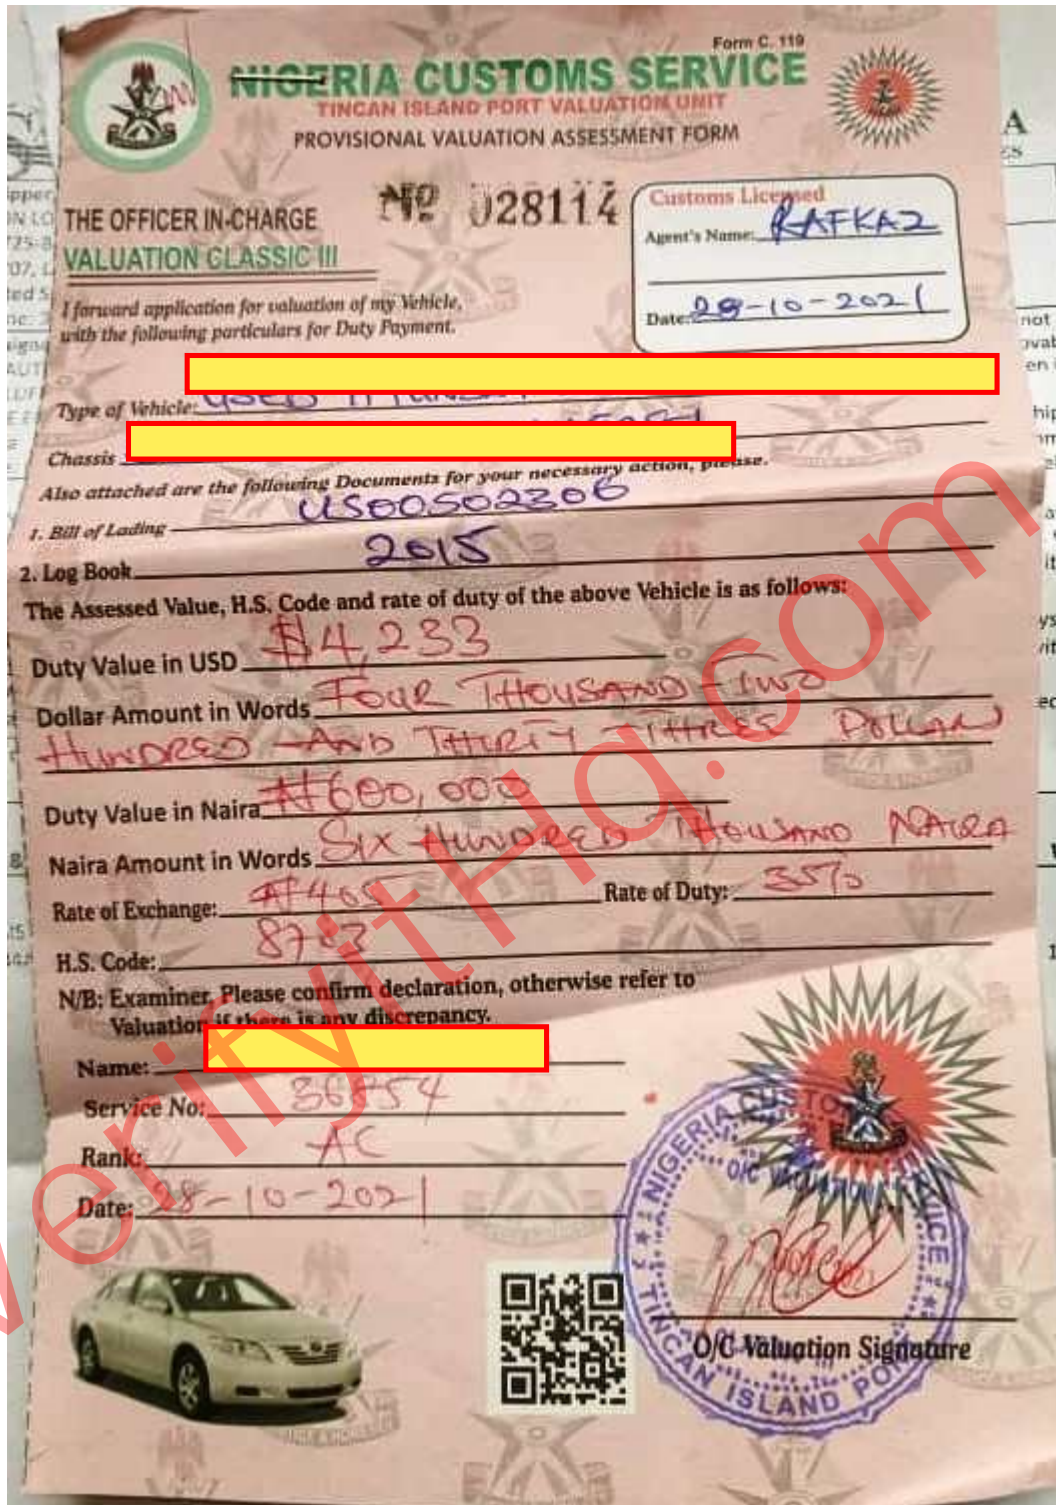 Form C. 119
NIGERIA CUSTOMS SERVICE
TINCAN ISLAND PORT VALUATION UNIT
PROVISIONAL VALUATION ASSESSMENT FORM
Nº 028114
THE OFFICER IN-CHARGE
VALUATION CLASSIC III
Customs Licensed
Agent's Name: RAFKAZ
Date: 28-10-2021
I forward application for valuation of my Vehicle,
with the following particulars for Duty Payment.
Type of Vehicle: USED
Chassis
Also attached are the following Documents for your necessary action, please.
1. Bill of Lading US00502306
2. Log Book 2015
The Assessed Value, H.S. Code and rate of duty of the above Vehicle is as follows:
Duty Value in USD $4,233
Dollar Amount in Words FOUR THOUSAND TWO
HUNDRED AND THIRTY THREE DOLLAR
Duty Value in Naira ₦600,000
Naira Amount in Words SIX HUNDRED THOUSAND NAIRA
Rate of Exchange: ₦405 Rate of Duty: 35%
H.S. Code: 8703
N/B: Examiner, Please confirm declaration, otherwise refer to
Valuation if there is any discrepancy.
Name:
Service No:
Rank: AC
Date: 28-10-2021
NIGERIA CUSTOMS SERVICE
O/C VALUATION
TINCAN ISLAND PORT
O/C Valuation Signature
verifyitHq.com